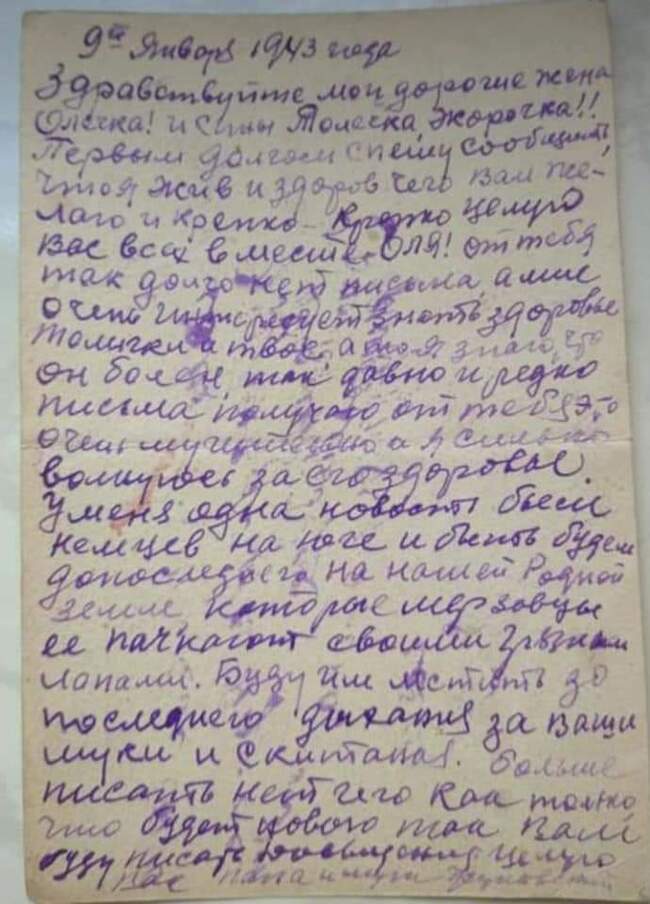 9го Января 1943 года
Здравствуйте мои дорогие жена
Олечка! и сыны Толечка, Жорочка!!
Первым долгом спешу сообщить,
что я жив и здоров чего вам же-
лаю и крепко крепко целую
вас всех вместе. Оля! от тебя
так долго нет письма, а мне
очень интересует знать здоровье
Толички и твое, а то я знаю, что
он болен так давно и редко
письма получаю от тебя это
очень мучительно и я сильно
волнуюсь за его здоровье.
У меня одна новость бьем
немцев на юге и бить будем
допоследнего на нашей Родной
земле, которые мерзовцы
ее пачкают своими грязными
лапами. Буду им мстить до
последнего дыхания за ваши
муки и скитания. Больше
писать нет чего как только
что будет нового так вам
буду писать досвидания целую
вас папа и муж